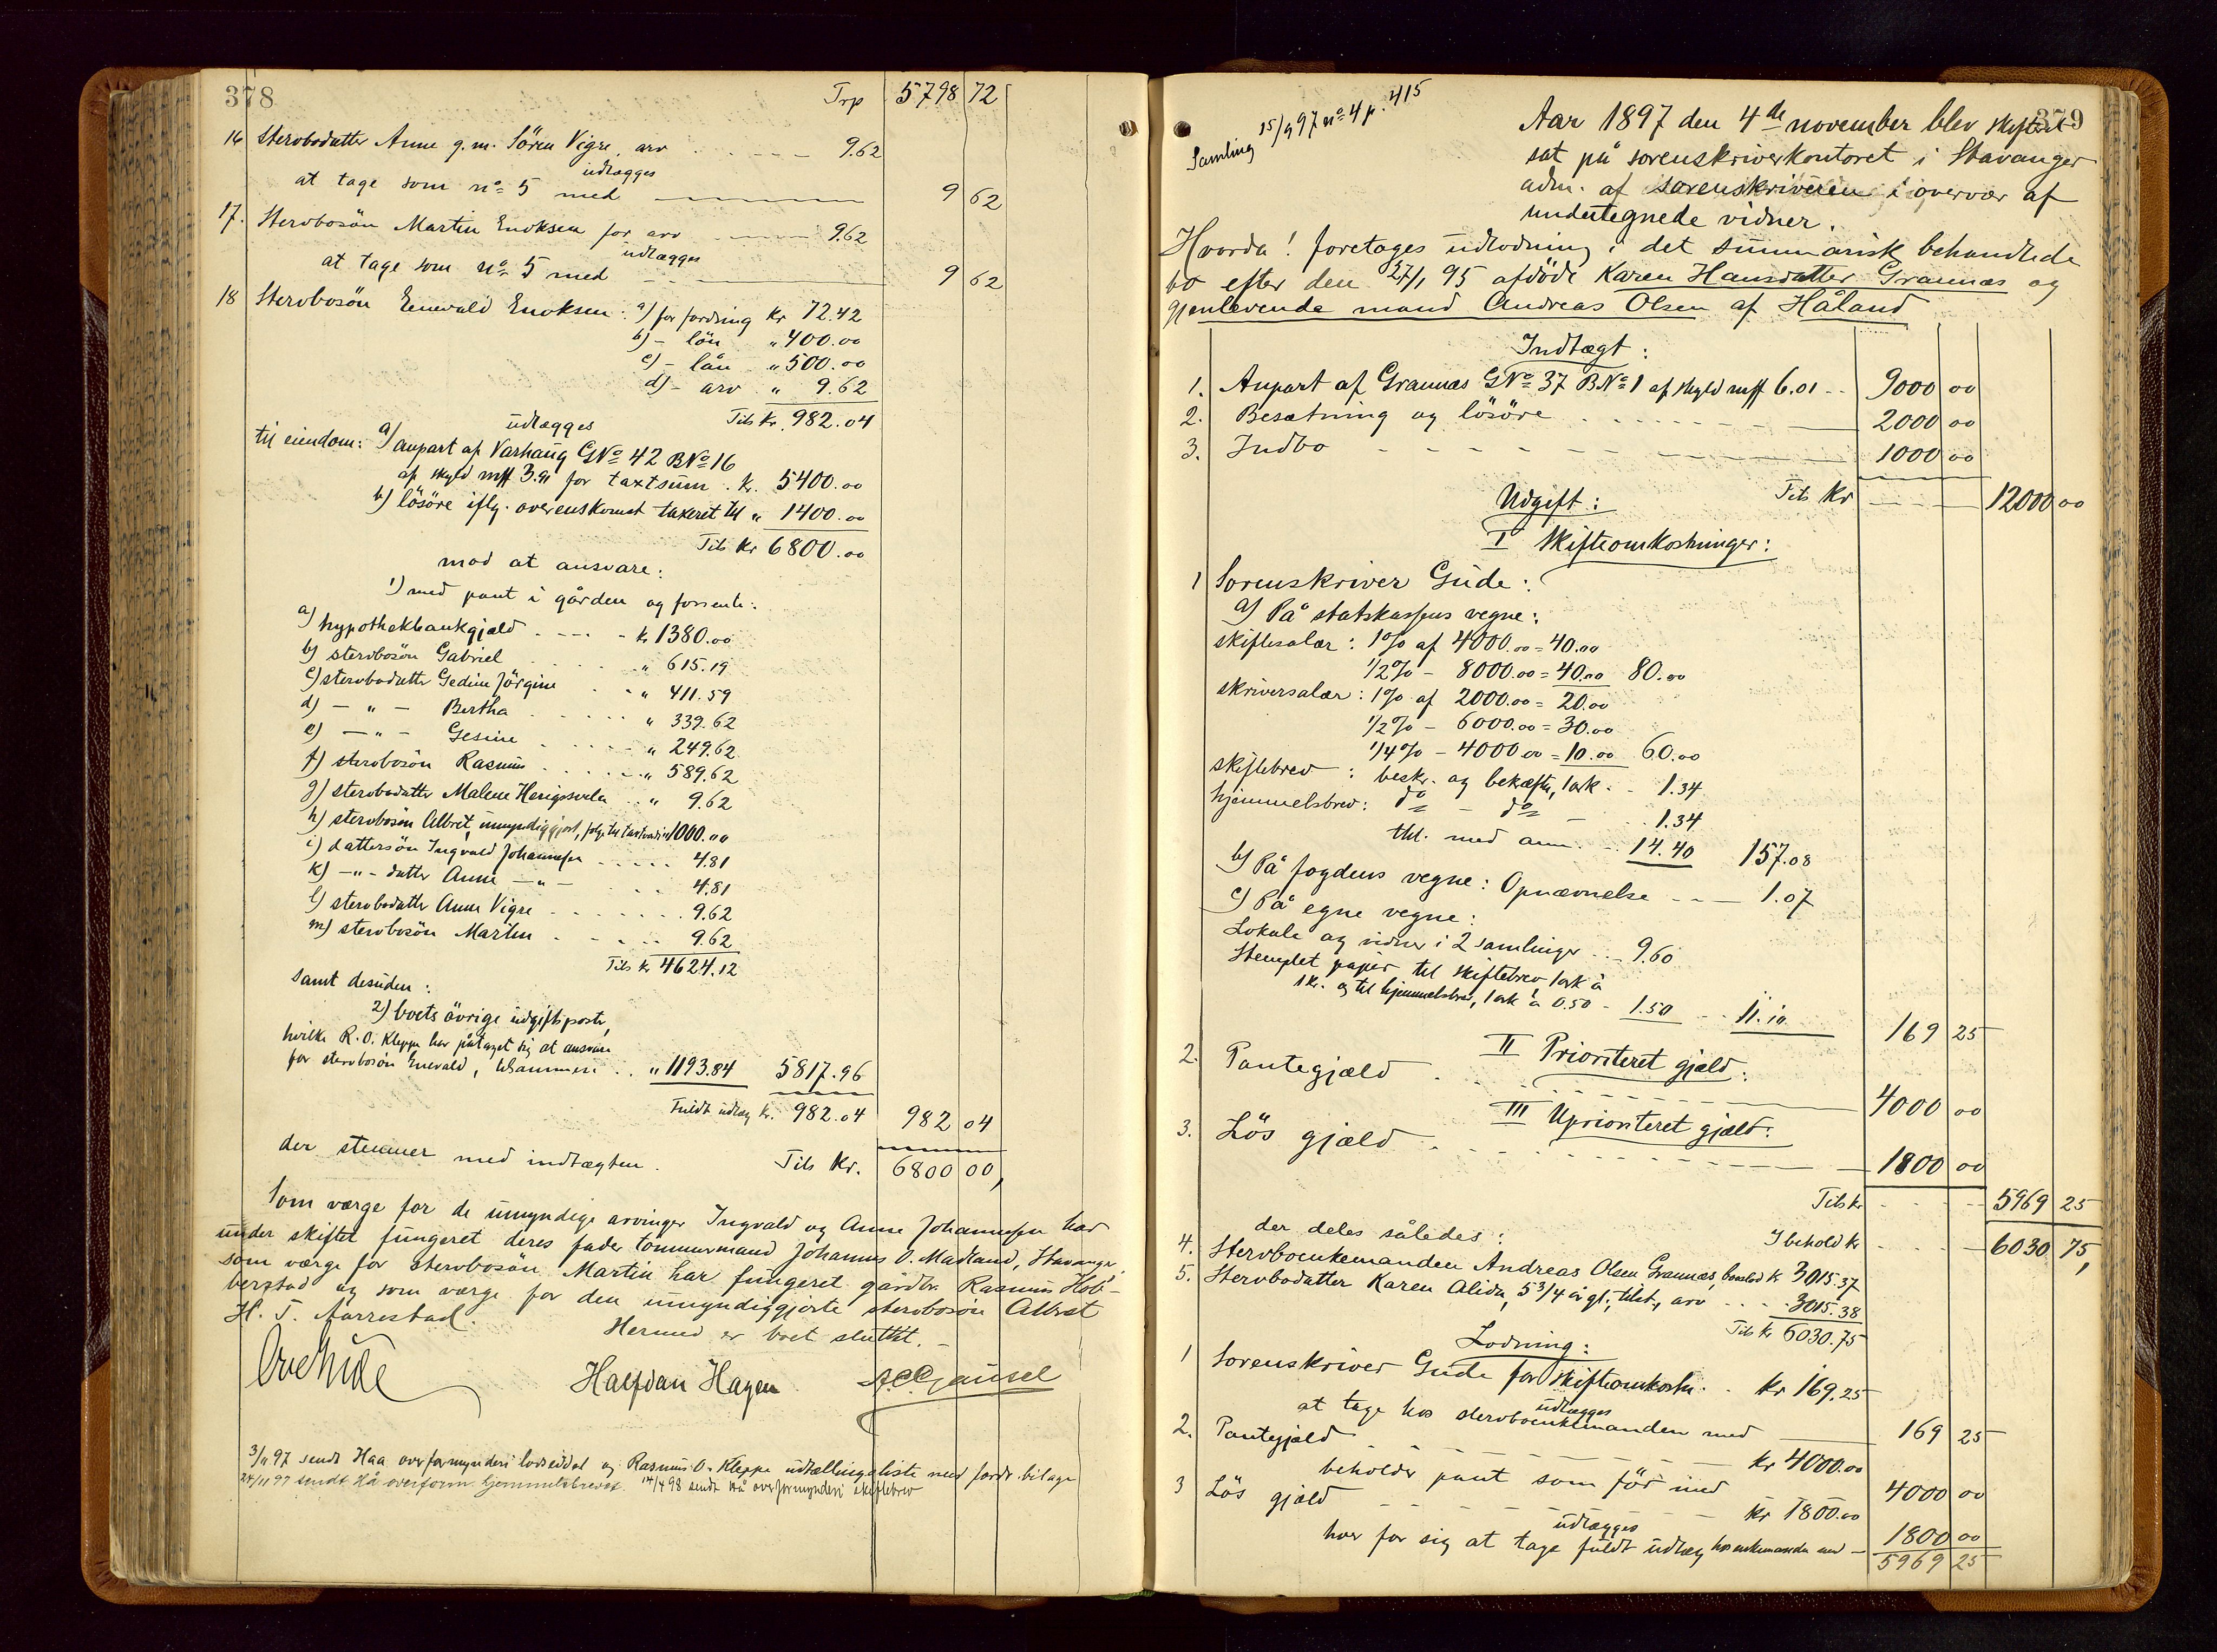 378
Trp 5798 72
16 Sterbodatter Anne g.m. Sören Vigre, arv 9.62
udlægges
at tage som no 5 med 9 62
17. Stervbosön Martin Enoksen for arv 9.62
udlægges
at tage som no 5 med 9 62
18 Stervbosön Enevald Enoksen: a) for fordring Kr 72.42
b) - lön „ 400.00
c) - lån „ 500.00
d) - arv „ 9.62
udlægges Tils Kr. 982.04
til eiendom: a) anpart af Varhaug GNo 42 BNo 16
af skyld mk 3.91 for taxtsum . kr. 5400.00
b) lösöre iflg. overenskomst taxeret til „ 1400.00
Tils Kr 6800.00
mod at ansvare:
1) med pant i gården og forrente:
a) hypothekbankgjæld kr 1380.00
b) stervbosön Gabriel „ 615.19
c) stervbodatter Gedine Jörgine „ 411.59
d) - „ - Bertha „ 339.62
e) - „ - Gesine „ 249.62
f) stervbosön Rasmus „ 589.62
g) stervbodatter Malene Herigsvela „ 9.62
h) stervbosön Albret, umyndiggjort, 1000.00
i) dattersön Ingvald Johannesen 4.81
k) -„- datter Anne -„- 4.81
l) stervbodatter Anne Vigre 9.62
m) stervbosön Martin 9.62
Tils kr 4624.12
samt desuden:
2) boets övrige udgiftsposter,
hvilke R. O. Kleppe har påtaget sig at ansvare
for stervbosön Enevald, tilsammen „ 1193.84 5817.96
Fuldt udlæg kr. 982.04 982 04
der stemmer med indtægten. Tils Kr. 6800 00,
Som værge for de umyndige arvinger Ingvald og Anne Johannesen har
under skiftet fungeret deres fader tömmermand Johannes O. Madland, Stavanger,
som værge for stervbosön Martin har fungeret gårdbr. Rasmus Hob-
berstad og som værge for den umyndiggjorte stervbosön Albret
H. T. Aarrestad.
Hermed er boet sluttet. -
Ove Gude Halfdan Hagen
3/11 97 sendt Haa overformynderi lodseddel og Rasmus O. Kleppe udtællingsliste med fordr. bilage
24/11 97 sendt Hå overform. hjemmelsbrevet. 14/4 98 sendt Hå overformynderi skiftebrev
379
Samling 15/9 97 no 4 p. 415
Aar 1897 den 4de november blev skifteret
sat på sorenskriverkontoret i Stavanger
adm. af sorenskriveren i overvær af
undertegnede vidner.
Hvorda! foretoges udlodning i det summarisk behandlede
bo efter den 27/1 95 afdöde Karen Hansdatter Grannæs og
gjenlevende mand Andreas Olsen af Håland
Indtægt:
1. Anpart af Grannæs GNo 37 BNo 1 af skyld mk 6.01 9000 00
2. Besætning og lösöre 2000 00
3. Indbo 1000 00
Tils Kr 12000 00
Udgift:
I Skifteomkostninger:
1 Sorenskriver Gude:
a) På statskassens vegne:
skiftesalær: 1% af 4000.00 = 40.00
1/2% - 8000.00 = 40.00 80.00
skriversalær: 1% af 2000.00 = 20.00
1/2% - 6000.00 = 30.00
1/4% - 4000.00 = 10.00 60.00
skiftebrev: beskr. og bekæft., 1 ark 1.34
hjemmelsbrev: do - do - 1.34
thl. med anm. 14.40 157.08
b) På fogdens vegne: Opnævnelse 1.07
c) På egne vegne:
Lokale og vidner i 2 samlinger 9.60
Stemplet papir til skiftebrev 1 ark à
1 kr. og til hjemmelsbrev, 1 ark à 0.50 - 1.50 11.10 169 25
II Prioriteret gjæld:
2. Pantegjæld 4000 00
III Uprioriteret gjæld:
3. Lös gjæld 1800 00
Tils kr 5969 25
I behold kr 6030 75,
der deles således:
4. Stervboenkemanden Andreas Olsen Grannæs, boeslod kr 3015.37
5. Stervbodatter Karen Alida, 5 3/4 år gl., tilst., arv 3015.38
Tils kr 6030.75
Lodning:
1 Sorenskriver Gude for skifteomkostn. kr 169.25
udlægges
at tage hos stervboenkemanden med 169 25
2. Pantegjæld kr 4000.00
beholder pant som för med 4000 00
3 Lös gjæld kr 1800.00
udlægges
hver for sig at tage fuldt udlæg hos enkemanden med 1800 00
5969 25